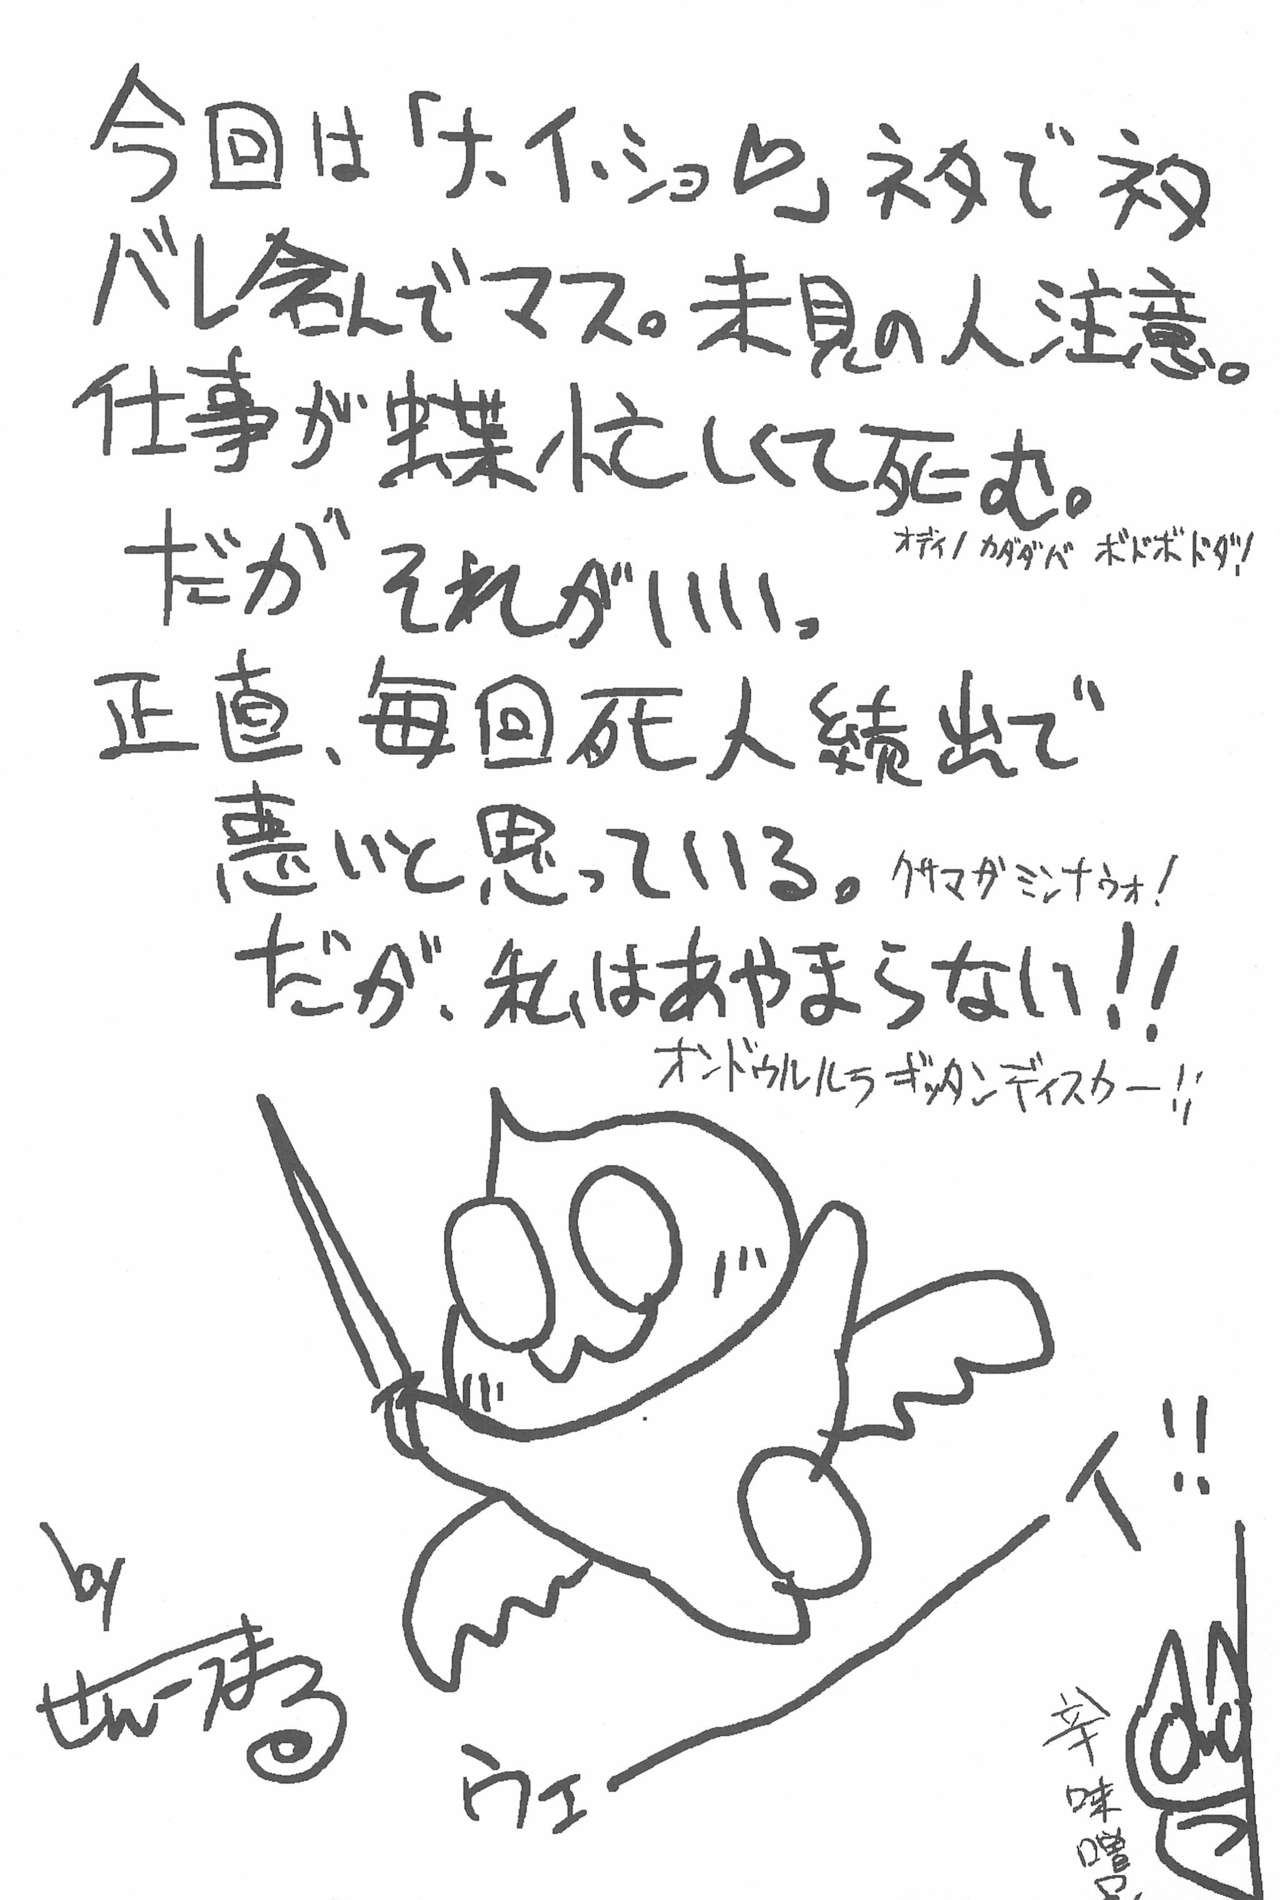 今回は「ナ、イ、ショ♡」ネタでネタ
バレ含んでマス。未見の人注意。
仕事が蝶忙しくて死む。
オディノカダダバボドボドダ!
だがそれがいい。
正直、毎回死人続出で
悪いと思っている。
クサマガミンナウォ!
だが、私はあやまらない!!
オンドゥルルラギッタンディスカー!!
ウェーイ!!
by
せんーまる
辛味噌